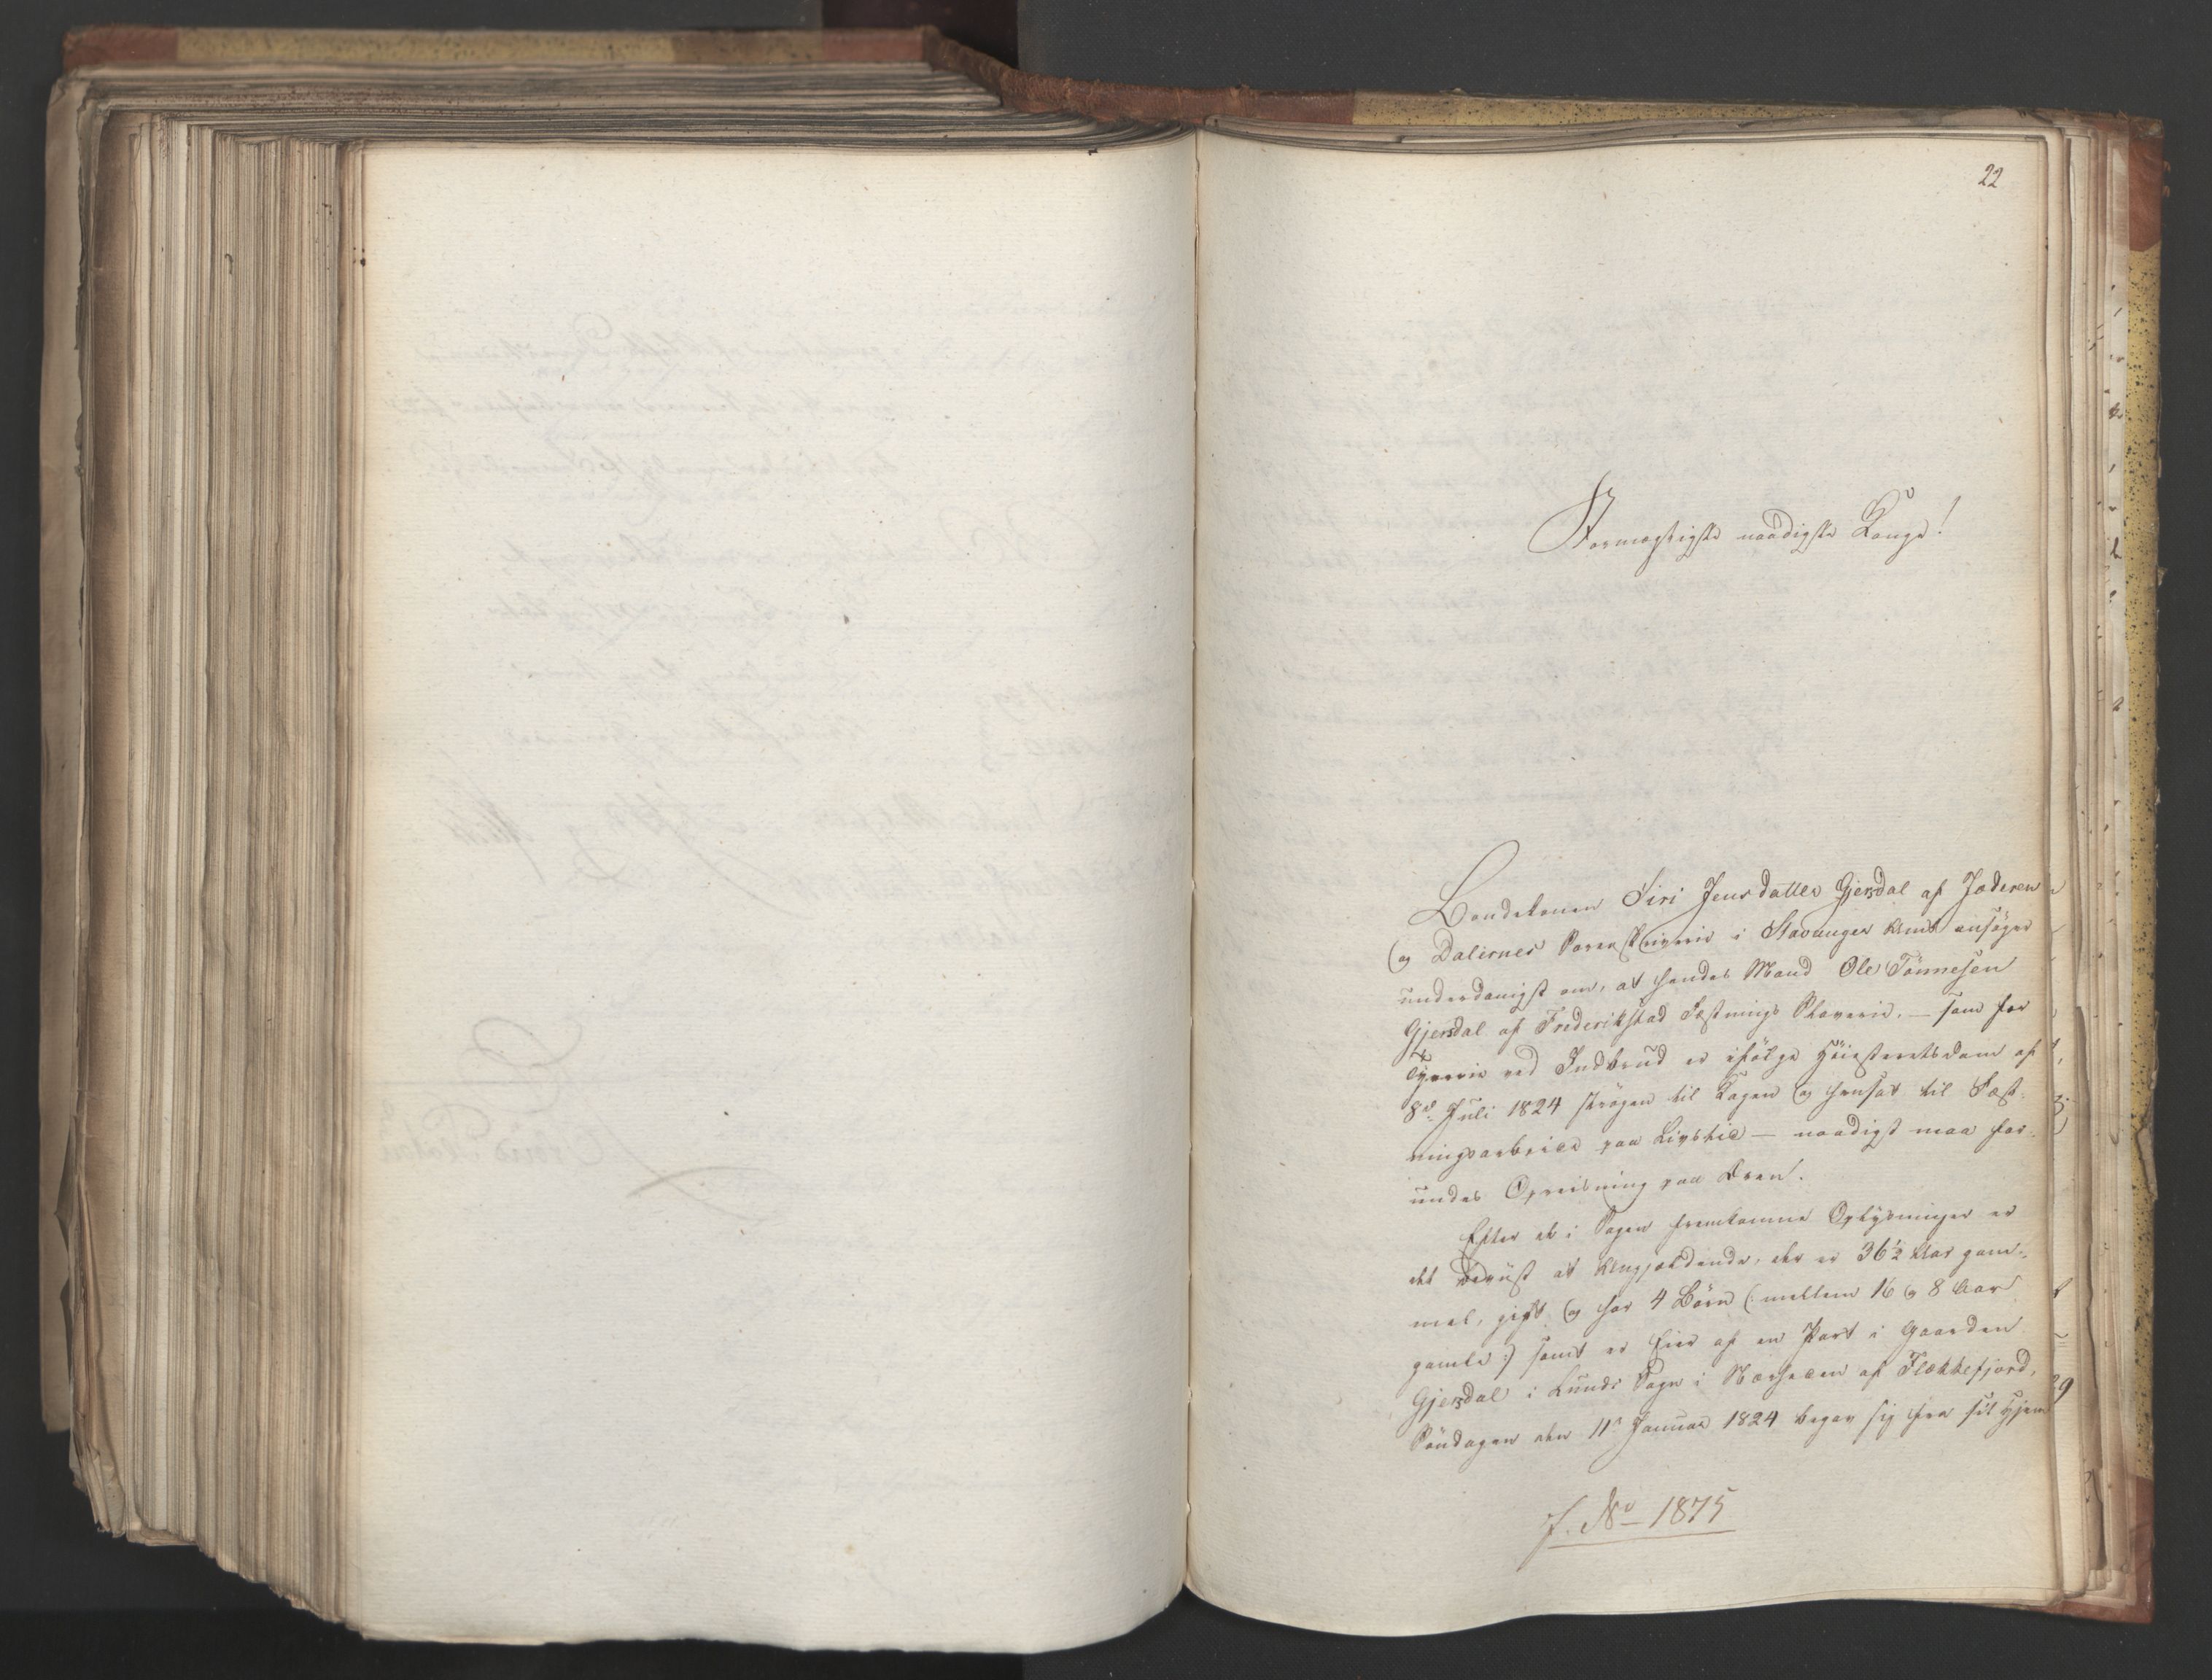 22
Stormægtigste naadigste Konge!
Bondekonen Siri Jensdatter Gjersdal af Jæderen
og Dalernes Sorenskriverie i Stavanger Amt ansøger
underdanigst om, at hendes Mand Ole Tønnesen
Gjersdal af Frederikstad Fæstnings Slaverie, — som for
Tyverie ved Indbrud er ifølge Høiesteretsdom af
8de Juli 1824 strøgen til Kagen og hensat til Fæst-
ningsarbeide paa Livstid — naadigst maa for-
undes Opreisning paa Æren.
Efter de i Sagen fremkomne Oplysninger er
det beviist at Angjældende, der er 36½ Aar gam-
mel, gift og har 4 Børn (: mellem 16 og 8 Aar
gamle :) samt er Eier af en Part i Gaarden
Gjersdal i Lunds Sogn i Nærheden af Flækkefjord,
Søndagen den 11te Januar 1824 begav sig fra sit Hjem
J. No 1875